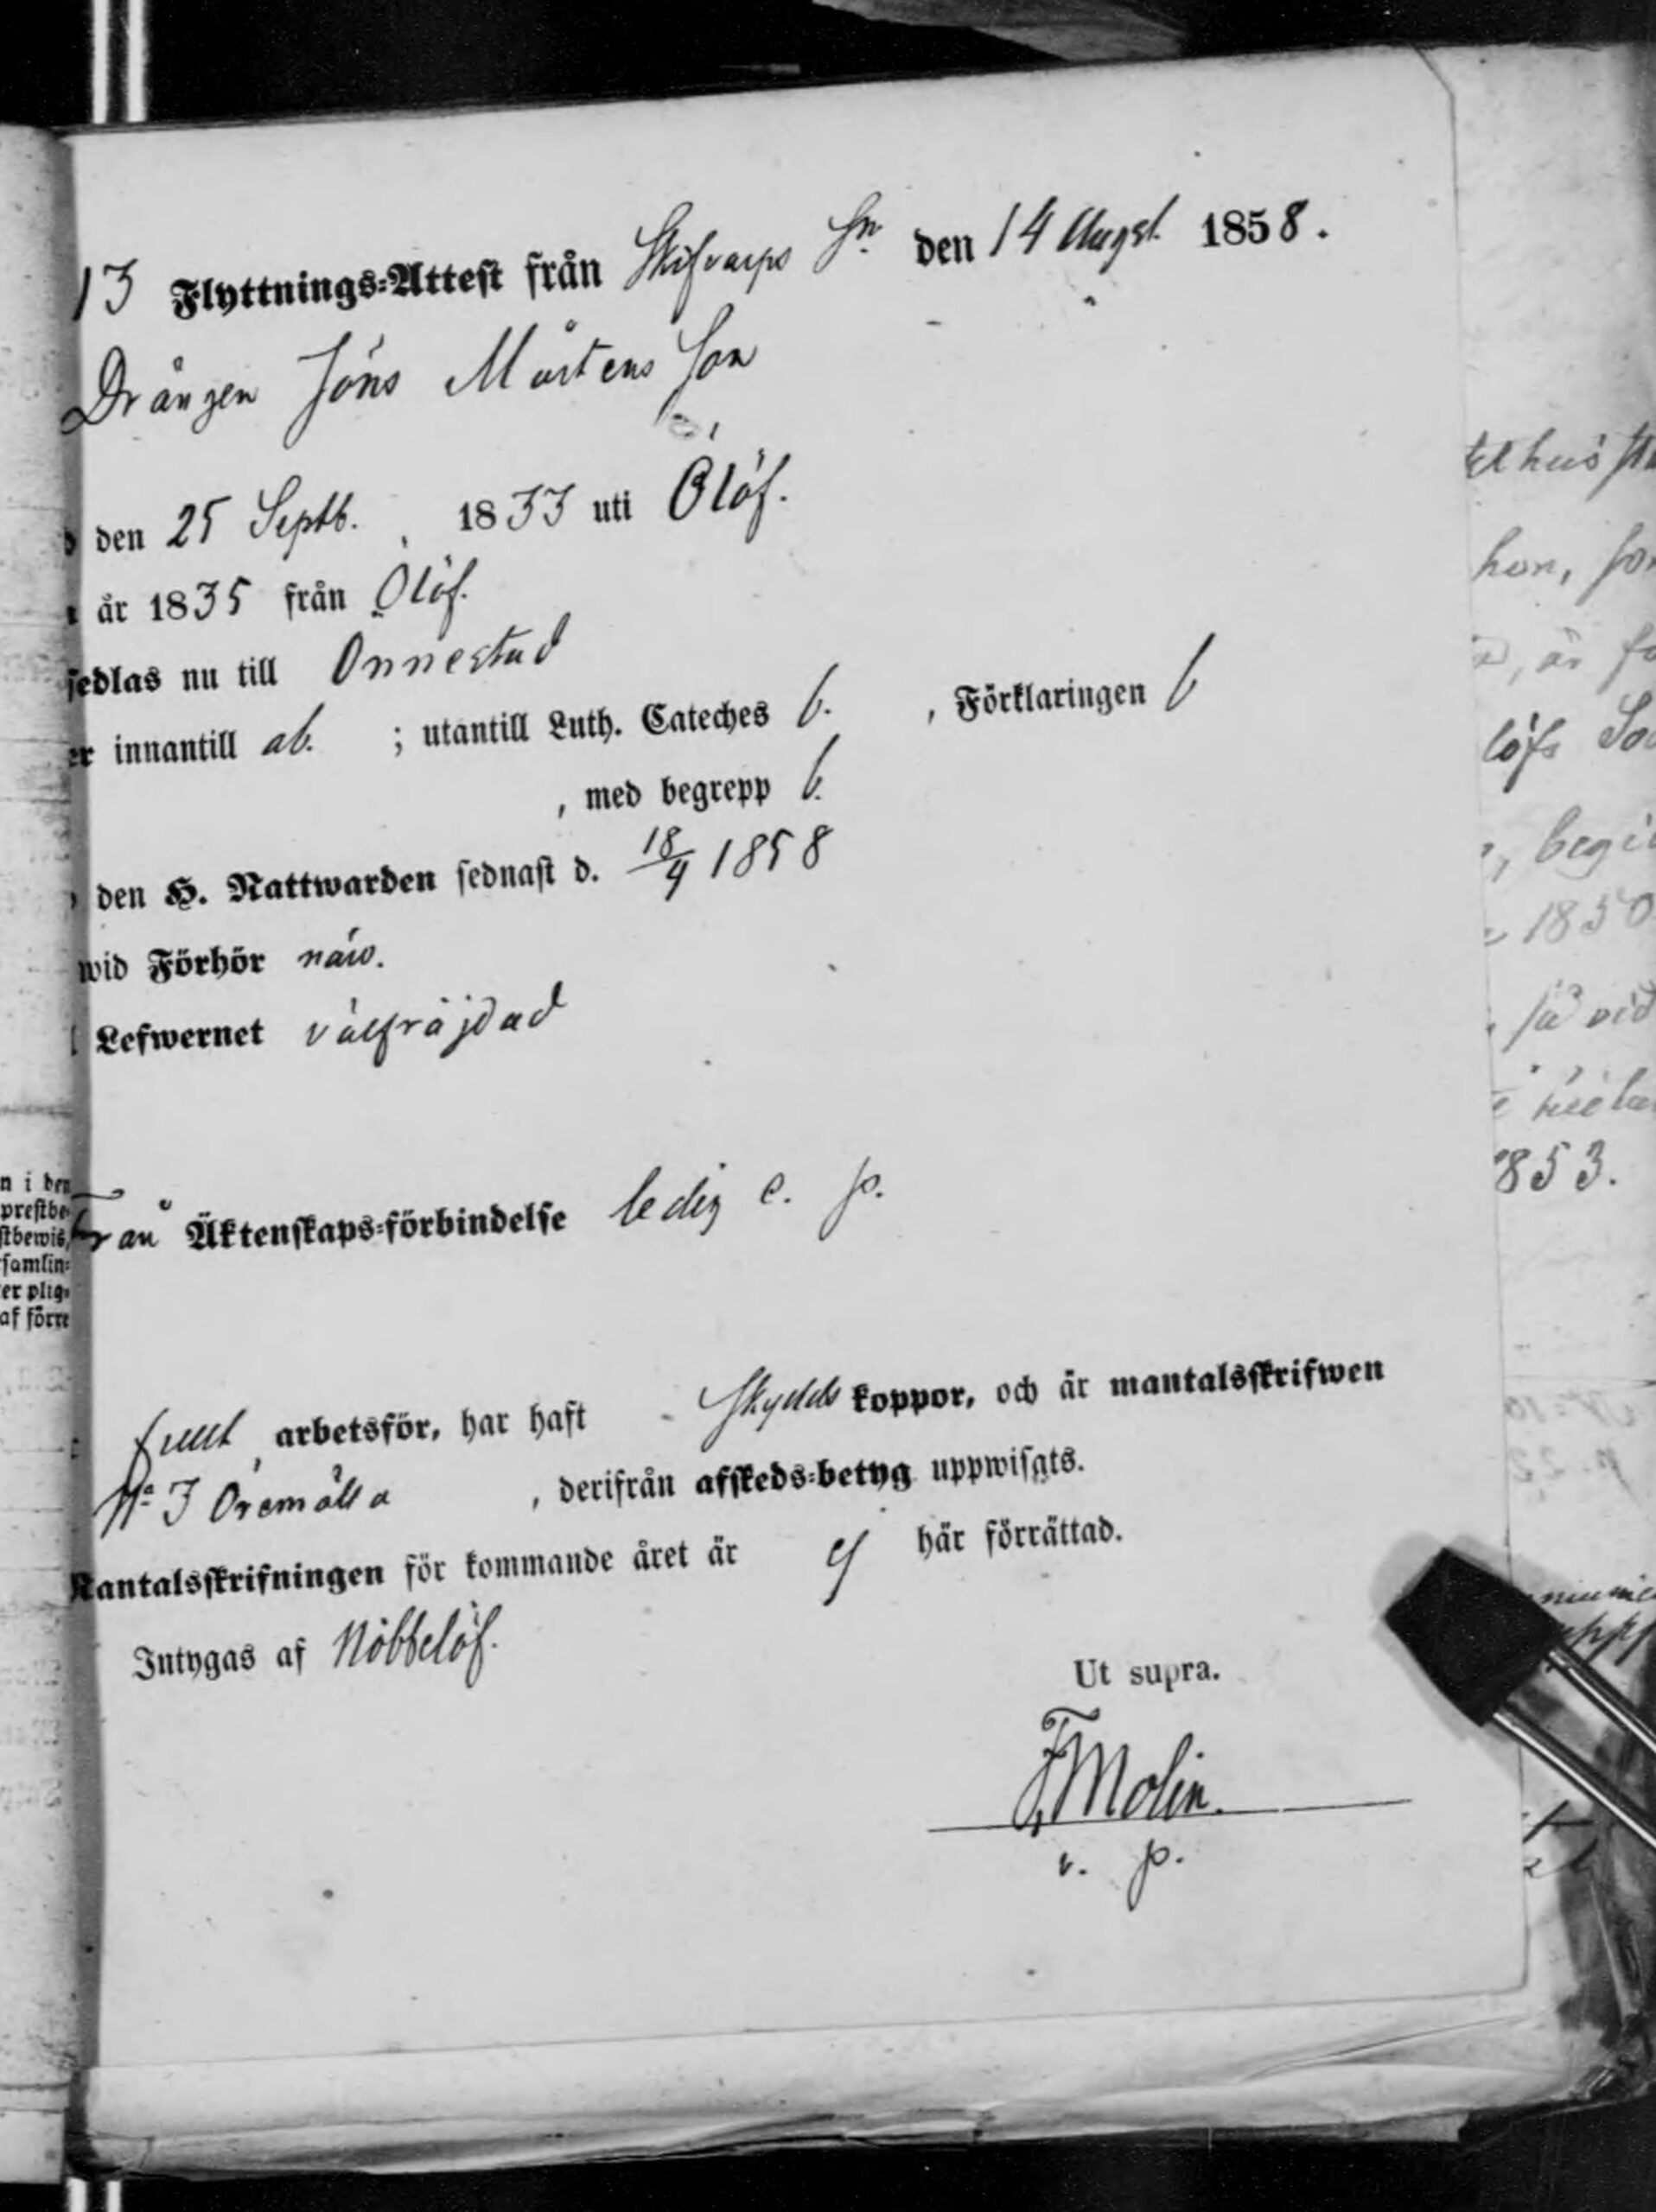 13 Flyttnings-Attest från Skifvarps Sn den 14 Augst. 1858.
Drängen Jöns Mårtens Son
den 25 Septb. 1833 uti Olöf.
år 1835 från Olöf.
sedlas nu till Önnestad
er innantill ab. ; utantill Luth. Cateches b. , Förklaringen b
, med begrepp b.
den H. Nattwarden sednast d. 18/4 1858
wid Förhör närv.
Lefwernet välfräjdad
från Äktenskaps-förbindelse ledig e. p.
fullt arbetsför, har haft Skydds koppor, och är mantalsskrifwen
No 3 Öremölla , derifrån afskeds-betyg uppwisats.
Mantalsskrifningen för kommande året är ej här förrättad.
Intygas af Nöbbelöf.
Ut supra.
F Molin.
v. p.
n i den
prestbe-
stbewis,
samlin-
er plig-
af förre
hon, for
löfs
1850
så vid
1853.